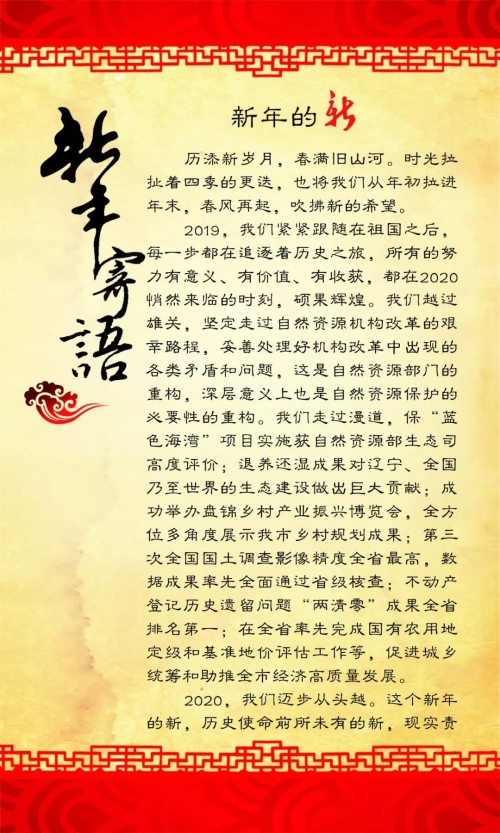 新年寄語
新年的新
历添新岁月，春满旧山河。时光拉
扯着四季的更迭，也将我们从年初拉进
年末，春风再起，吹拂新的希望。
2019，我们紧紧跟随在祖国之后，
每一步都在追逐着历史之旅，所有的努
力有意义、有价值、有收获，都在2020
悄然来临的时刻，硕果辉煌。我们越过
雄关，坚定走过自然资源机构改革的艰
辛路程，妥善处理好机构改革中出现的
各类矛盾和问题，这是自然资源部门的
重构，深层意义上也是自然资源保护的
必要性的重构。我们走过漫道，保“蓝
色海湾”项目实施获自然资源部生态司
高度评价；退养还湿成果对辽宁、全国
乃至世界的生态建设做出巨大贡献；成
功举办盘锦乡村产业振兴博览会，全方
位多角度展示我市乡村规划成果；第三
次全国国土调查影像精度全省最高，数
据成果率先全面通过省级核查；不动产
登记历史遗留问题“两清零”成果全省
排名第一；在全省率先完成国有农用地
定级和基准地价评估工作等，促进城乡
统筹和助推全市经济高质量发展。
2020，我们迈步从头越。这个新年
的新，历史使命前所未有的新，现实贵